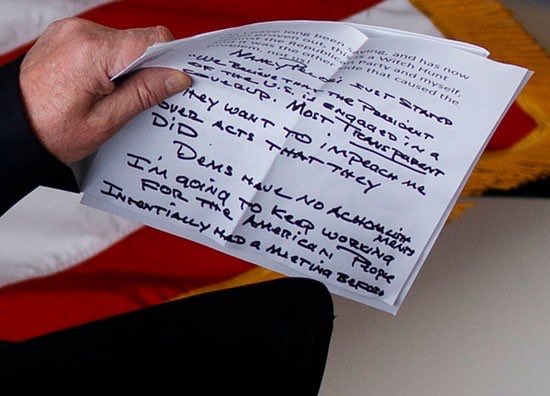 have long been
ing, and has now
out, th
a Witch Hunt
Republi
and myself,
was t
de that caused the
note other
Nancy Pelo Just Stated
"We Believe that the President
of the U.S. is engaged in a
coverup. Most Transparent
They want to impeach me
over acts that they
Did
Dems have no achomlishments
I'm going to keep working
for the American People
Intentially had a meeting before